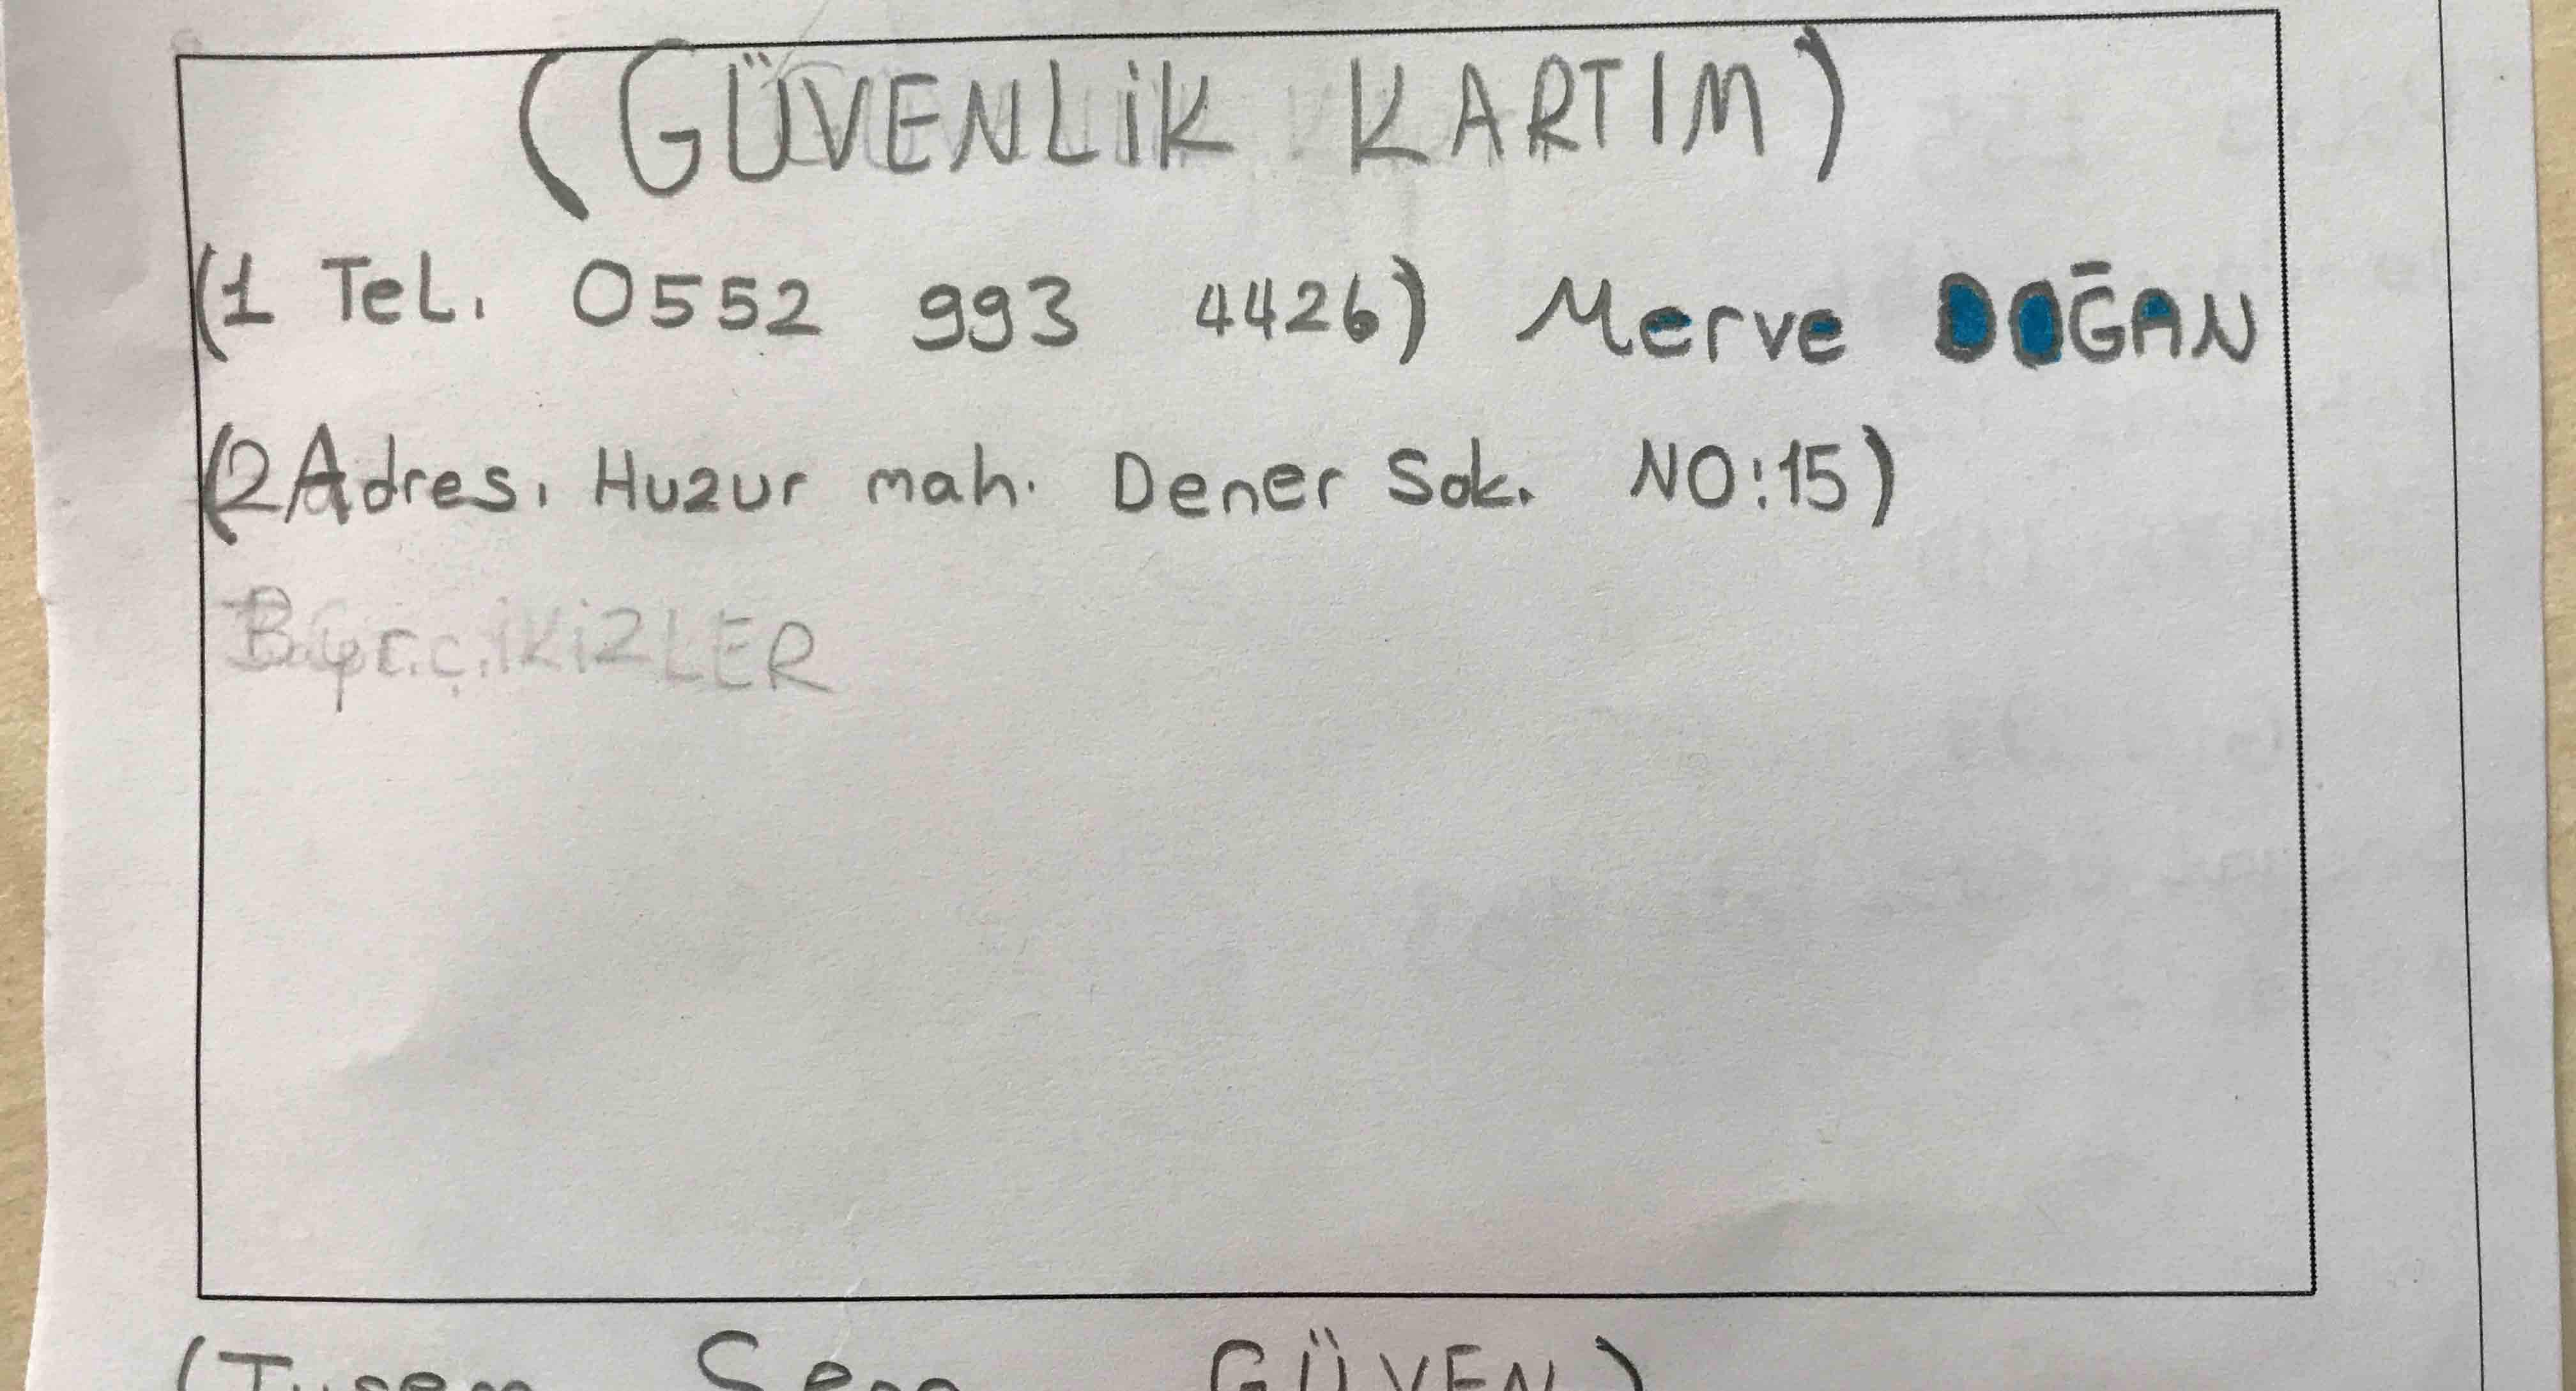 (GÜVENLİK KARTIM)
(1 Tel. 0552 993 4426) Merve DOĞAN
(2 Adres. Huzur mah. Dener Sok. NO:15)
İKİZLER
GÜVEN)